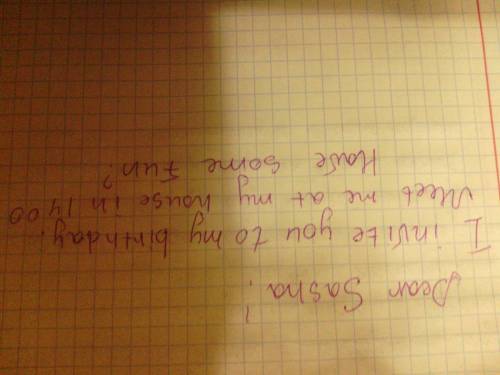 Dear Sasha!
I invite you to my birthday!
Meet me at my house in 14 00
Have some fun?